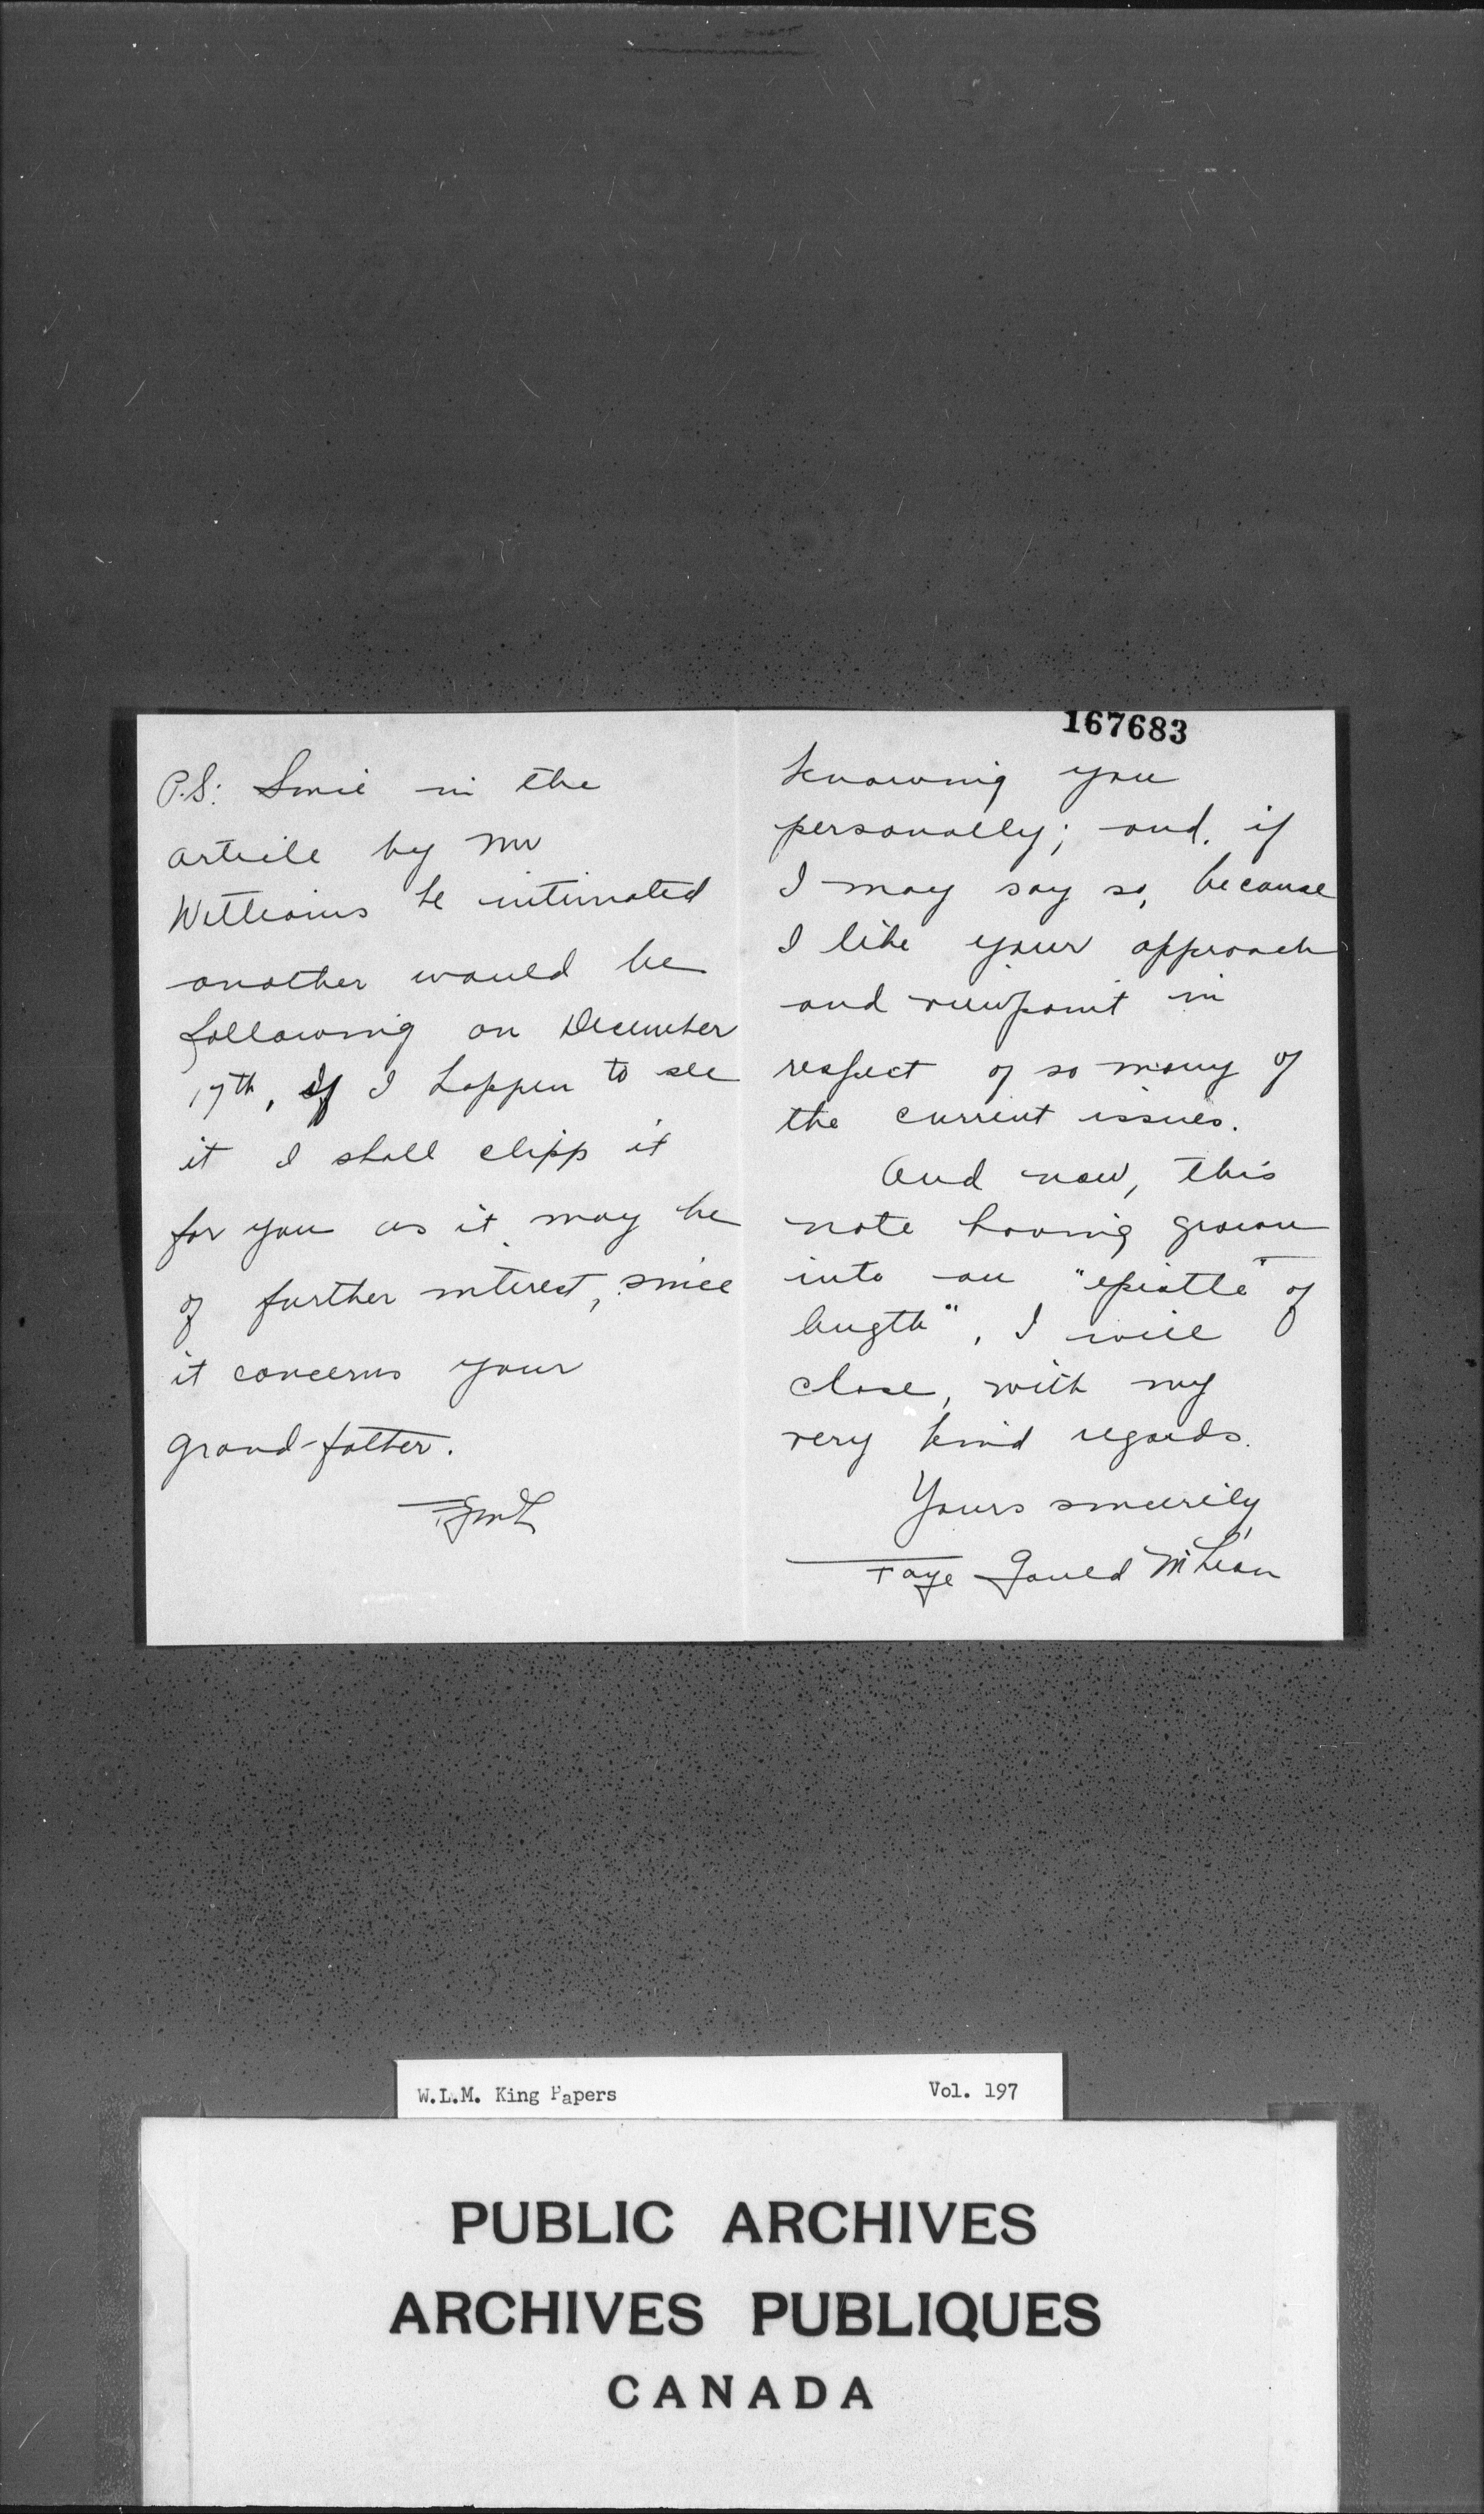 P.S: Since in the
article by Mr
Williams he intimated
another would be
following on December
17th, If I happen to see
it I shall clipp it
for you as it may be
of further interest, since
it concerns your
grand-father.
FGML
167683
knowing you
personally; and, if
I may say so, because
I like your approach
and viewpoint in
respect of so many of
the current issues.
And now, this
note having grown
into an "epistle" of
length", I will
close, with my
very kind regards.
Yours sincerely,
Faye Gould McLean
W.L.M. King Papers Vol. 197
PUBLIC ARCHIVES
ARCHIVES PUBLIQUES
CANADA